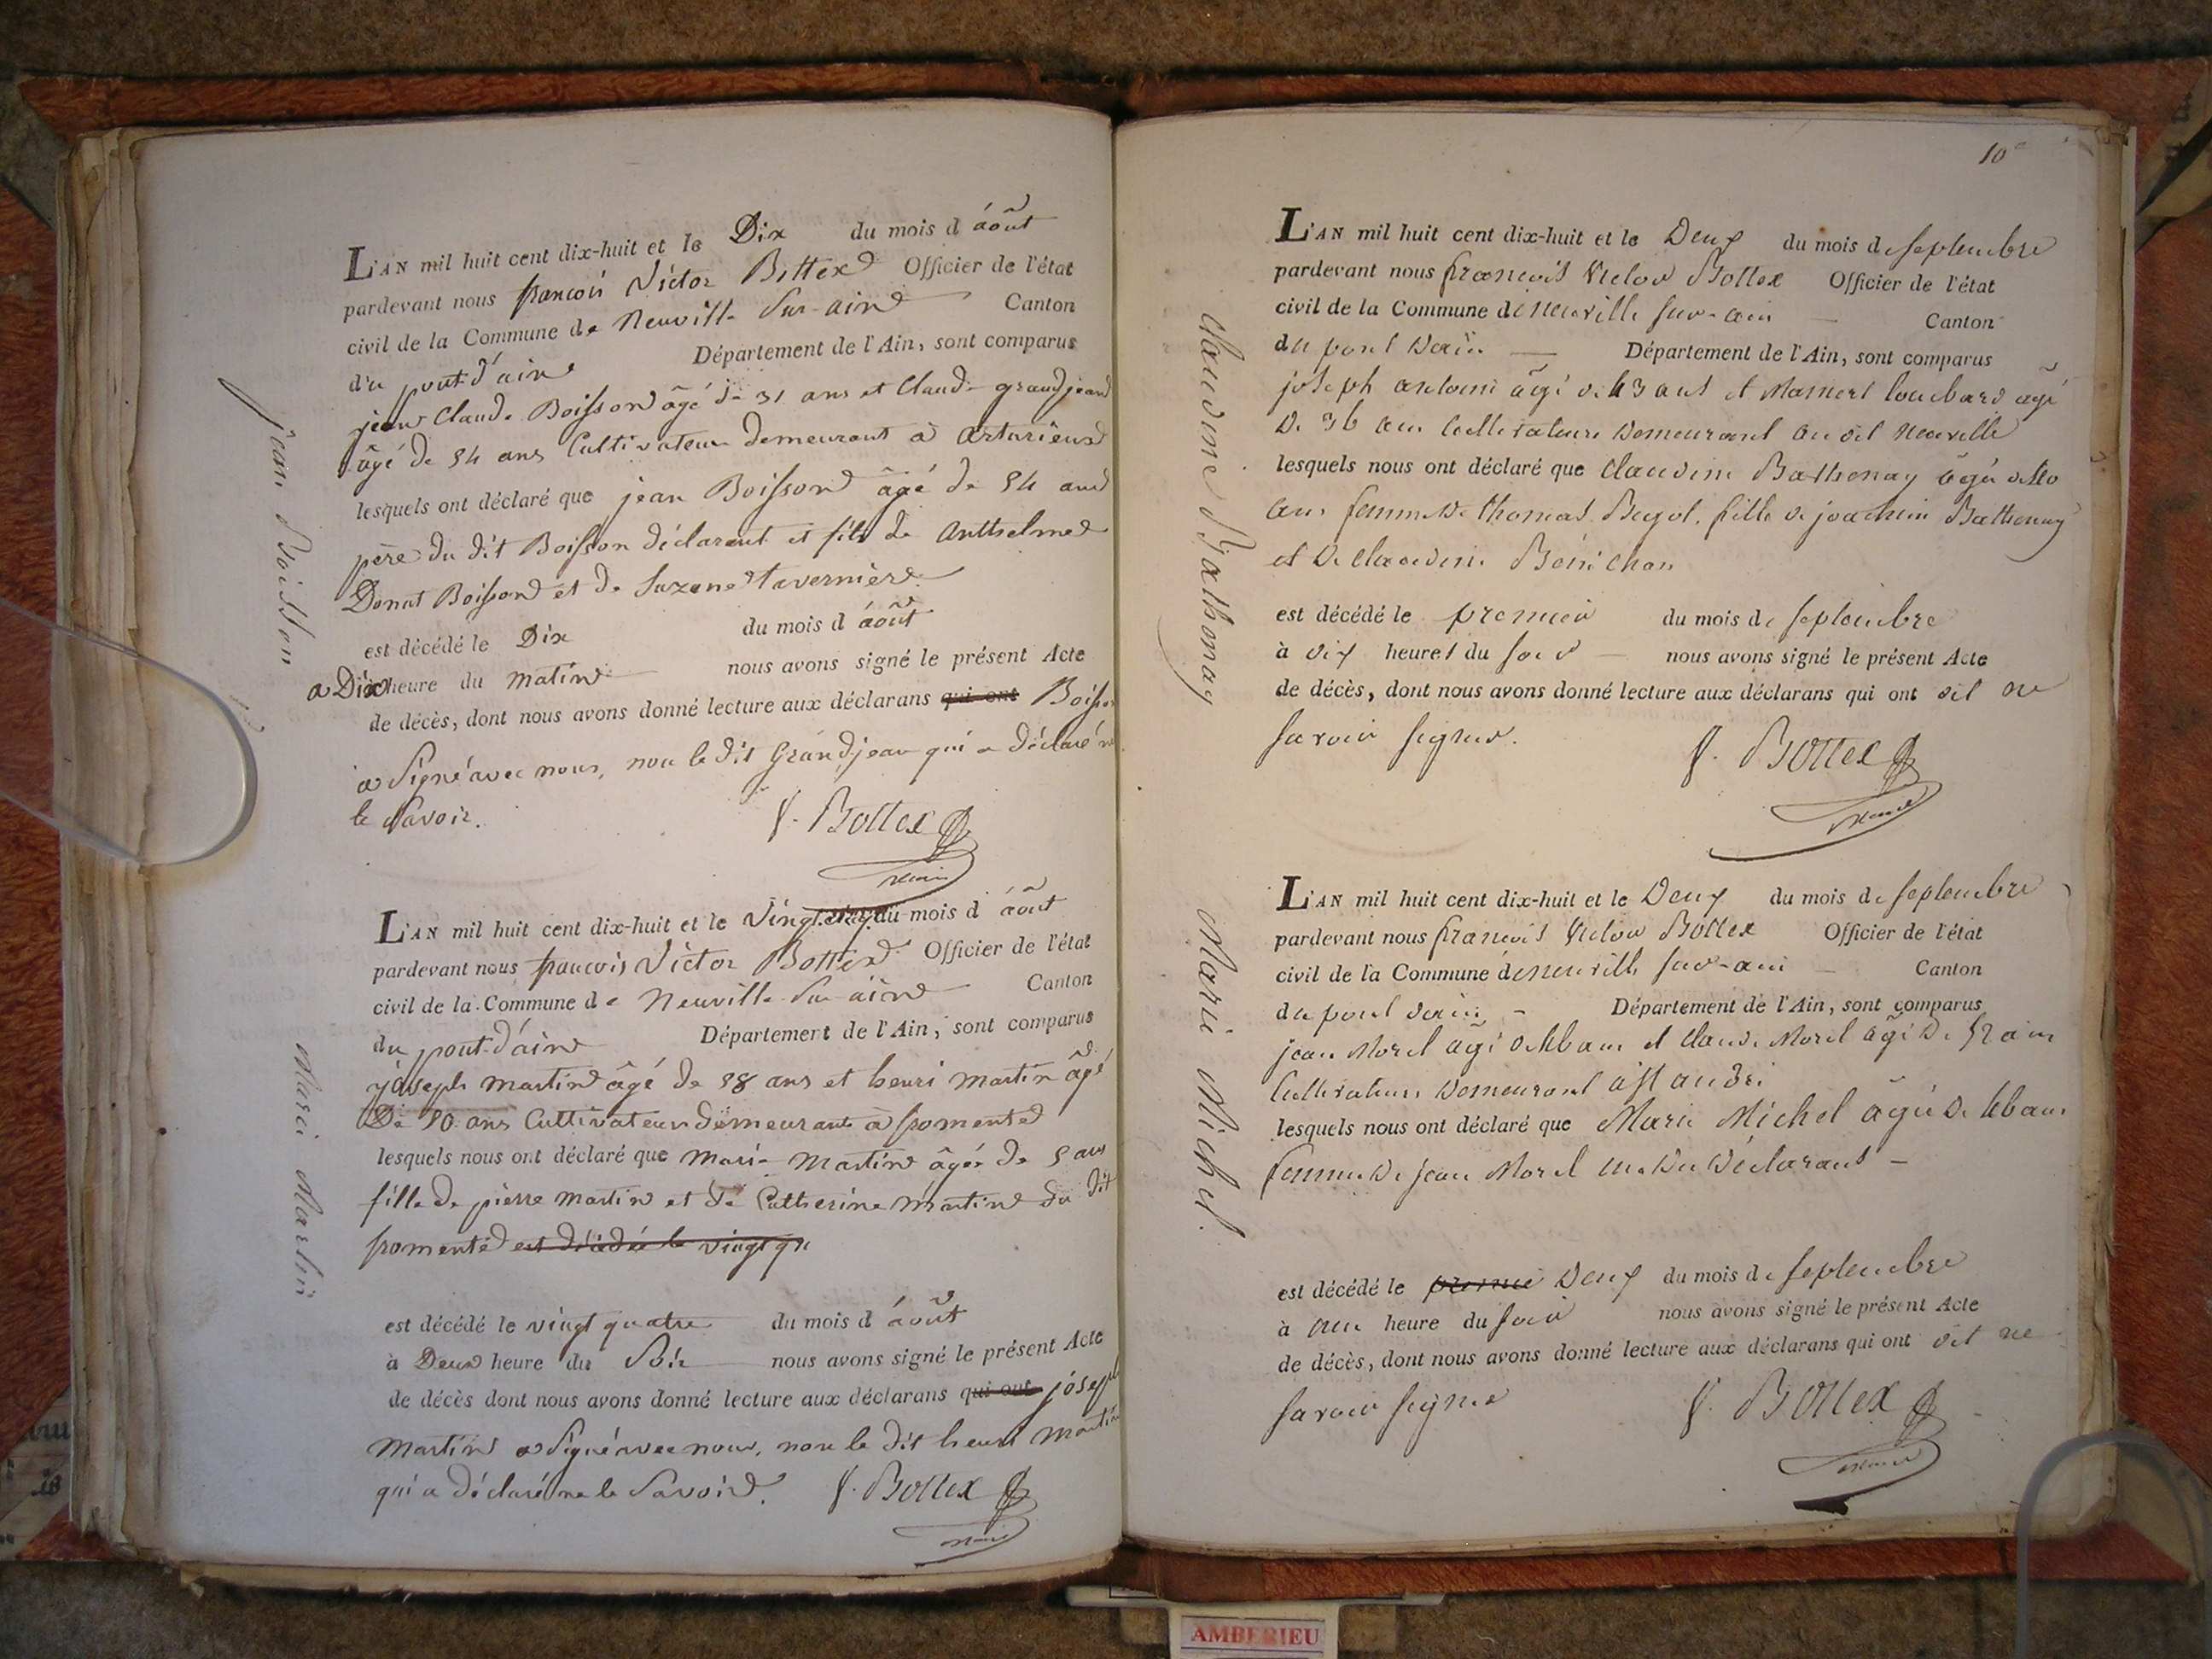 L'AN mil huit cent dix-huit et le Dix du mois d'août
pardevant nous françois Victor Bottex Officier de l'état
civil de la Commune de Neuville Sur-ain Canton
du pont-d'ain Département de l'Ain, sont comparus
jean Claude Boisson âgé de 31 ans et Claude grandjean
âgé de 54 ans Cultivateur demeurant à
lesquels ont déclaré que jean Boisson âgé de 54 ans
père du dit Boisson déclarant et fils de Anthelme
Donat Boisson et de Suzane tavernier
est décédé le Dix du mois d'août
a Dix heure du matin nous avons signé le présent Acte
de décès, dont nous avons donné lecture aux déclarans qui ont Boisson
a Signé avec nous, non le dit Grandjean qui a déclaré ne
le Savoir.
f. Bottex
maire
jean Boisson
L'AN mil huit cent dix-huit et le Vingt cinq du mois d'août
pardevant nous françois Victor Bottex Officier de l'état
civil de la Commune de Neuville Sur ain Canton
du pont-d'ain Département de l'Ain, sont comparus
joseph martin âgé de 58 ans et henri martin âgé
De 50 ans Cultivateurs demeurant à fromente
lesquels nous ont déclaré que marie martin âgée de 5 ans
fille de pierre martin et de Catherine martin du dit
fromente est décédée le vingt qu
est décédé le vingt quatre du mois d'août
à Deux heure du Soir nous avons signé le présent Acte
de décès dont nous avons donné lecture aux déclarans qui ont joseph
martin a Signé avec nous, non le dit henri martin
qui a déclaré ne le Savoir. f. Bottex
maire
Marie Martin
10
L'AN mil huit cent dix-huit et le Deux du mois de septembre
pardevant nous françois Victor Bottex Officier de l'état
civil de la Commune de neuville sur-ain Canton
du pont Dain Département de l'Ain, sont comparus
joseph antoine âgé de 43 ans et Mamert Loubard âgé
De 36 ans Cultivateurs Demeurant au dit neuville
lesquels nous ont déclaré que Claudine Bathenay âgée de
ans femme De thomas fille de joachim Bathenay
et De Claudine Bénichon
est décédé le premier du mois de septembre
à dix heures du soir nous avons signé le présent Acte
de décès, dont nous avons donné lecture aux déclarans qui ont dit ne
savoir signer.
f. Bottex
maire
Claudine Bathenay
L'AN mil huit cent dix-huit et le Deux du mois de septembre
pardevant nous françois Victor Bottex Officier de l'état
civil de la Commune de neuville sur-ain Canton
du pont dain Département de l'Ain, sont comparus
jean Morel âgé de ans et Claude Morel âgé De 52 ans
Cultivateurs Demeurant à st andré
lesquels nous ont déclaré que Marie Michel âgée De ans
femme De jean Morel un des Déclarans
est décédé le premie Deux du mois de septembre
à une heure du soir nous avons signé le présent Acte
de décès, dont nous avons donné lecture aux déclarans qui ont dit ne
savoir signer
f. Bottex
maire
Marie Michel.
AMBERIEU